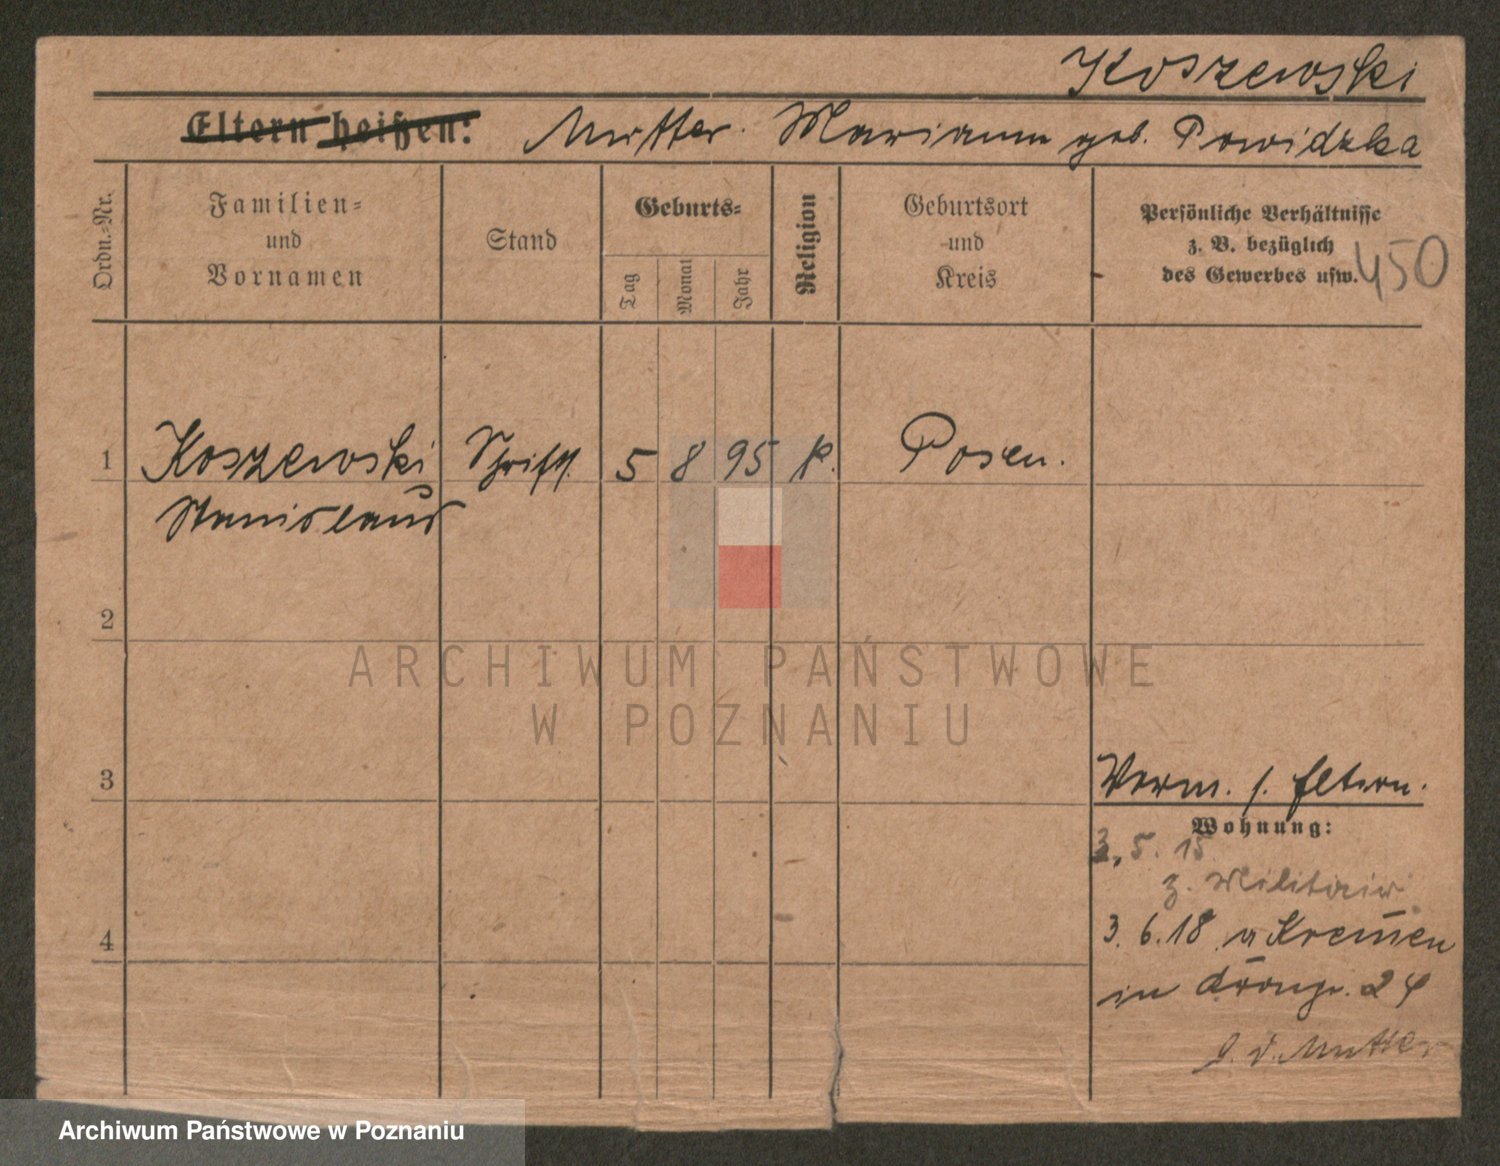 Koszewski
Eltern heißen: Mutter. Mariann geb. Powidzka
Ordn.-Nr.
Familien-
und
Vornamen
Stand
Geburts-
Tag
Monat
Jahr
Religion
Geburtsort
und
Kreis
Persönliche Verhältnisse
z. B. bezüglich
des Gewerbes usw.
450
1 Koszewski Schrifts. 5 8 95 k. Posen.
Stanislaus
2
ARCHIWUM PAŃSTWOWE
W POZNANIU
3
Verm. s. Eltern.
Wohnung:
3. 5. 15
z. Militair
4
3. 6. 18 Kremen
in 24
Mutter
Archiwum Państwowe w Poznaniu